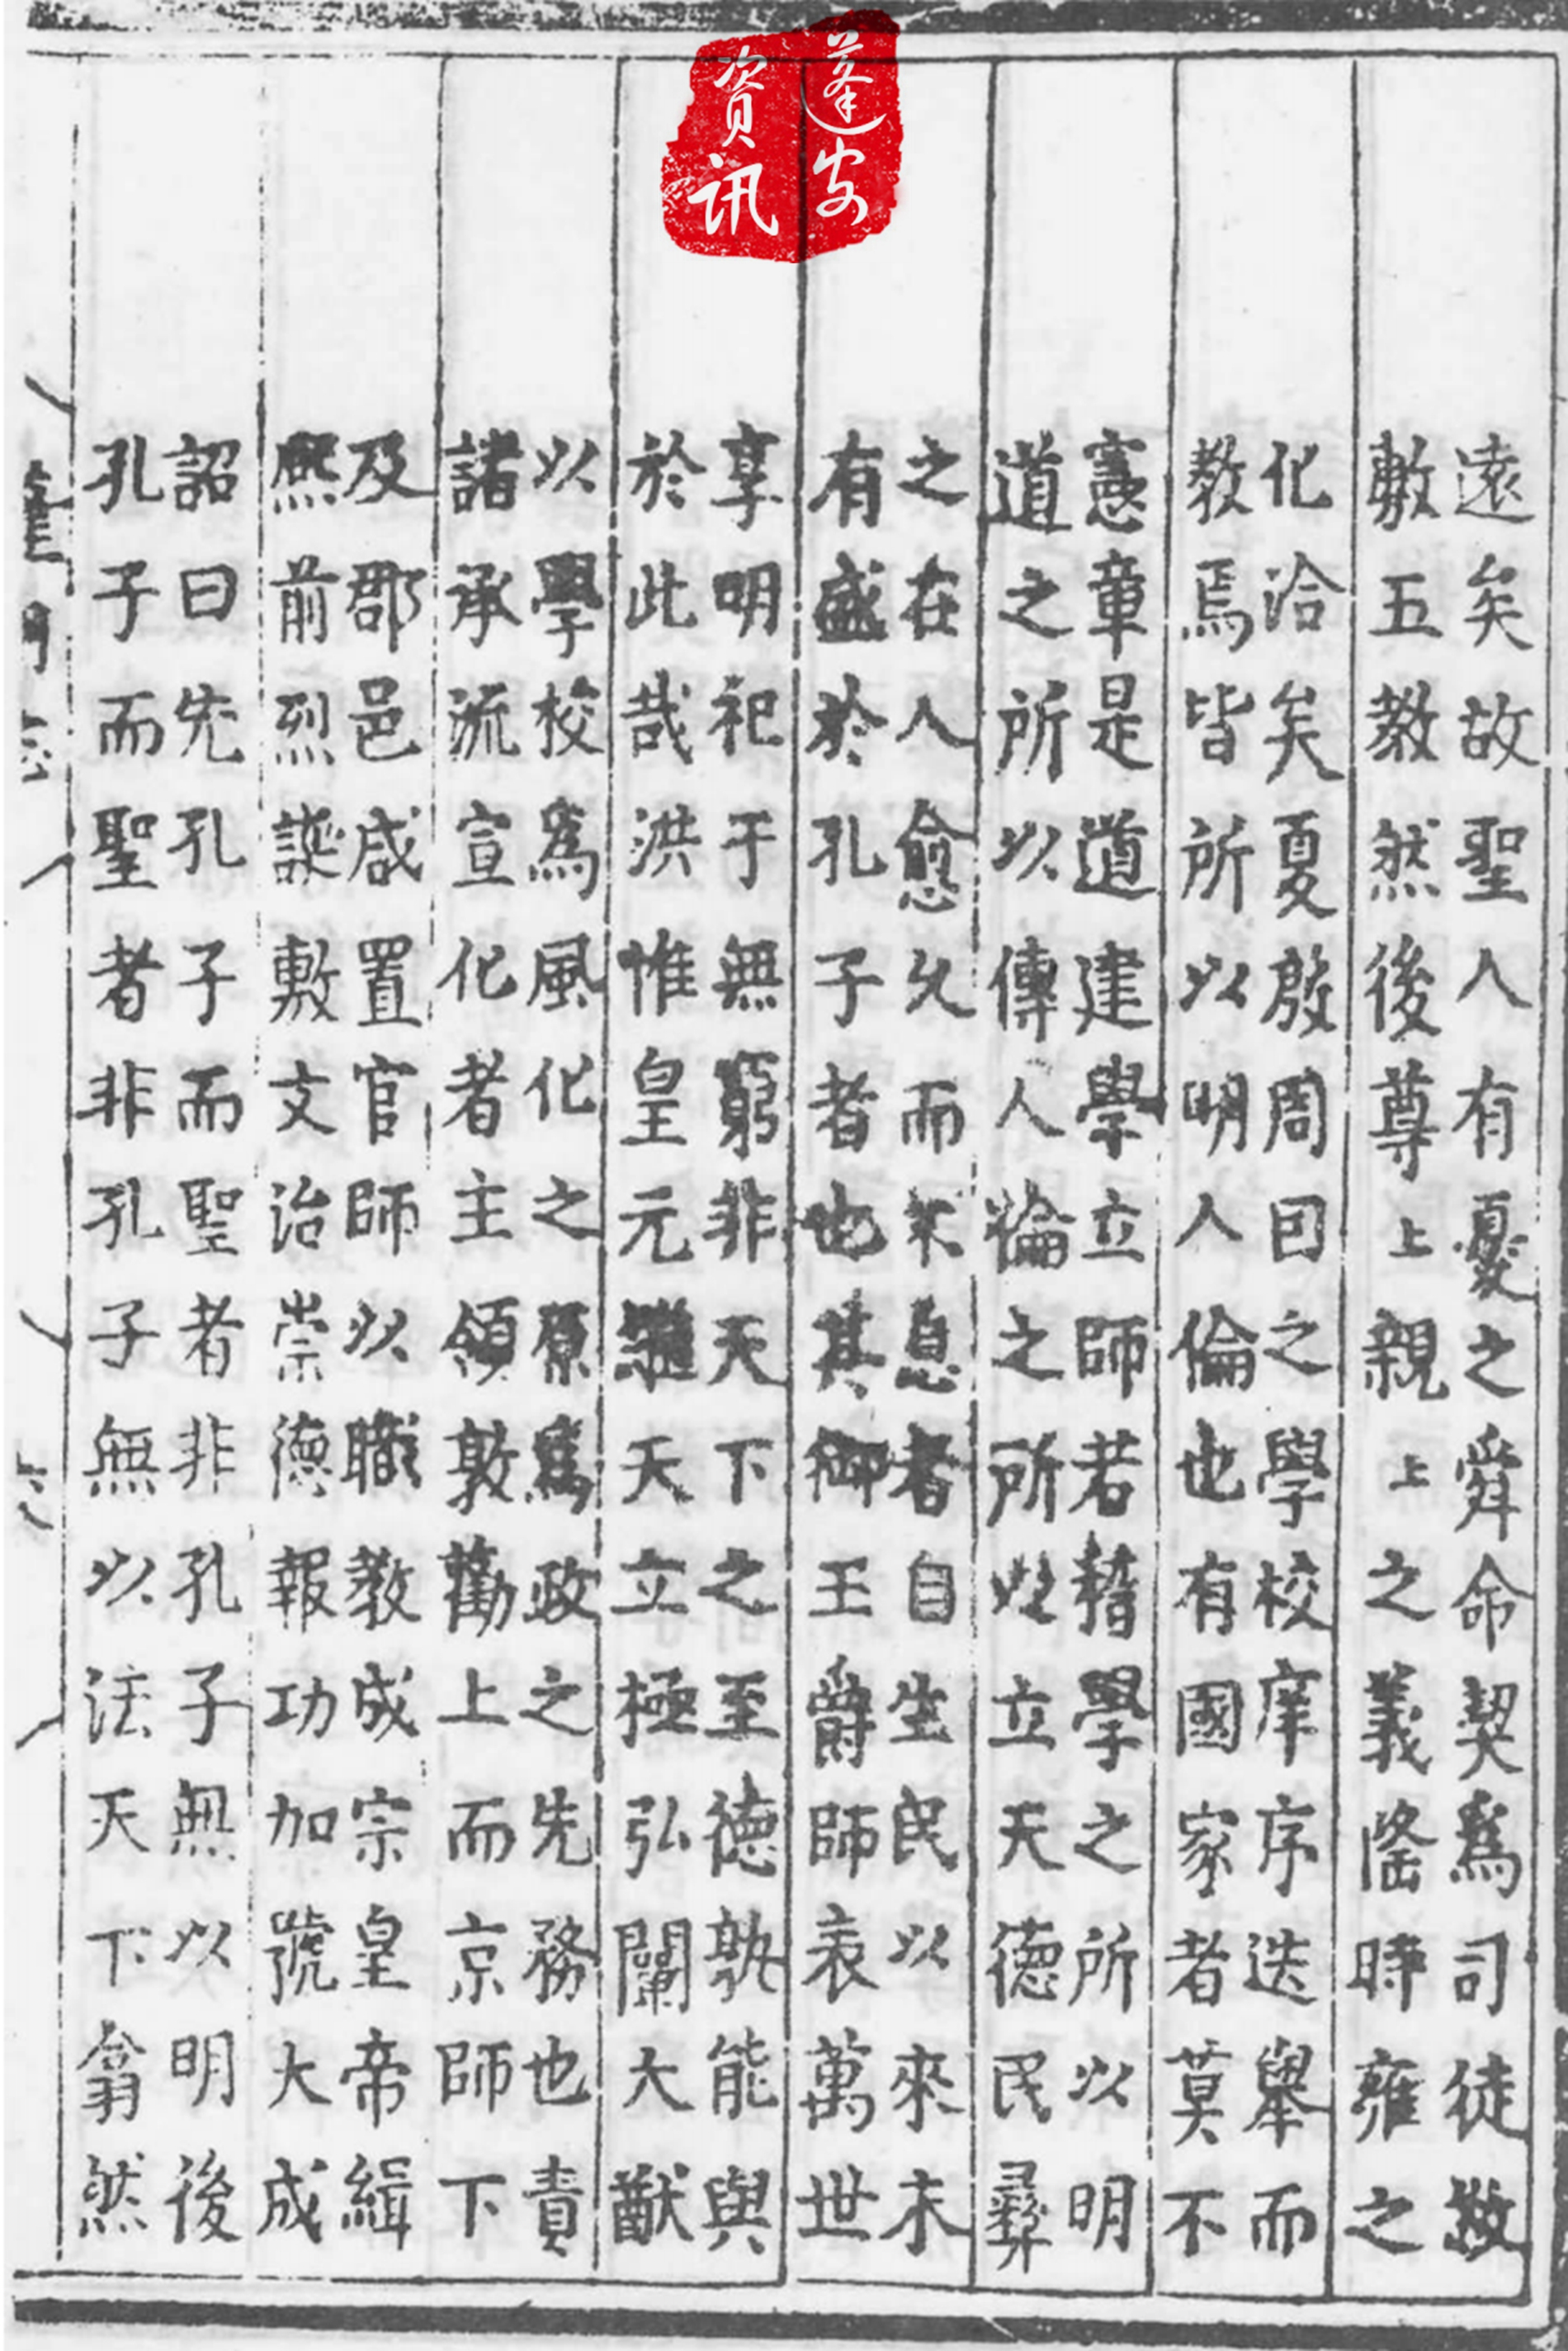 蓬安
资讯
遠矣故聖人有憂之舜命契爲司徒敬
敷五教然後尊上親上之義隆時雍之
化洽矣夏殷周因之學校庠序迭舉而
教焉皆所以明人倫也有國家者莫不
憲章是道建學立師若稽學之所以明
道之所以傳人倫之所以立天德民彝
之在人愈久而不息者自生民以來未
有盛於孔子者也其御王爵師表萬世
享明祀于無窮非天下之至德孰能與
於此哉洪惟皇元繼天立極弘闡大猷
以學校爲風化之原爲政之先務也責
諸承流宣化者主領敦勸上而京師下
及郡邑咸置官師以職教成宗皇帝緝
熙前烈誕敷文治崇德報功加號大成
詔曰先孔子而聖者非孔子無以明後
孔子而聖者非孔子無以法天下翕然